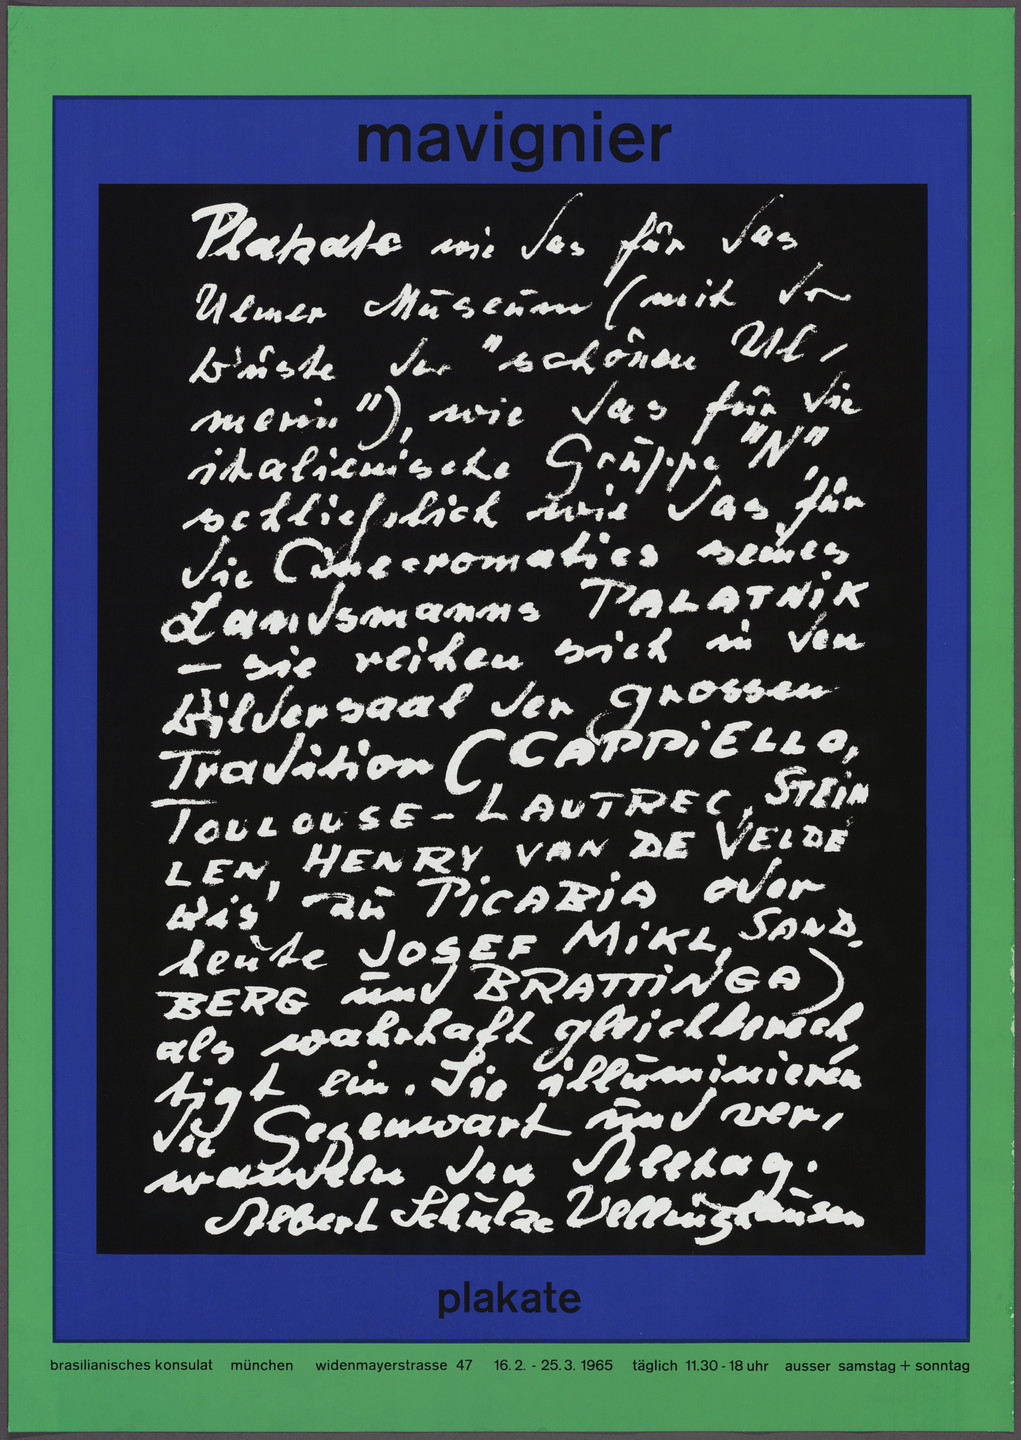 mavignier
Plakate wie das für das
Ulmer Museum (mit der
Büste der "schönen Ul-
merin"), wie das für die
italienische Gruppe "N",
schließlich wie das für
die Cinecromatics seines
Landsmanns PALATNiK
— sie reihen sich in den
Bildersaal der grossen
Tradition (CAPPiELLO,
TOULOUSE-LAUTREC, STEIN
LEN, HENRY VAN DE VELDE
bis zu PiCABiA oder
heute JOSEF MiKL, SAND-
BERG und BRATTiNGA)
als wahrhaft gleichberech
tigt ein. Sie illuminieren
die Gegenwart und ver-
wandeln den Alltag.
Albert Schulze Vellinghausen
plakate
brasilianisches konsulat münchen widenmayerstrasse 47 16.2. - 25.3. 1965 täglich 11.30 - 18 uhr ausser samstag + sonntag